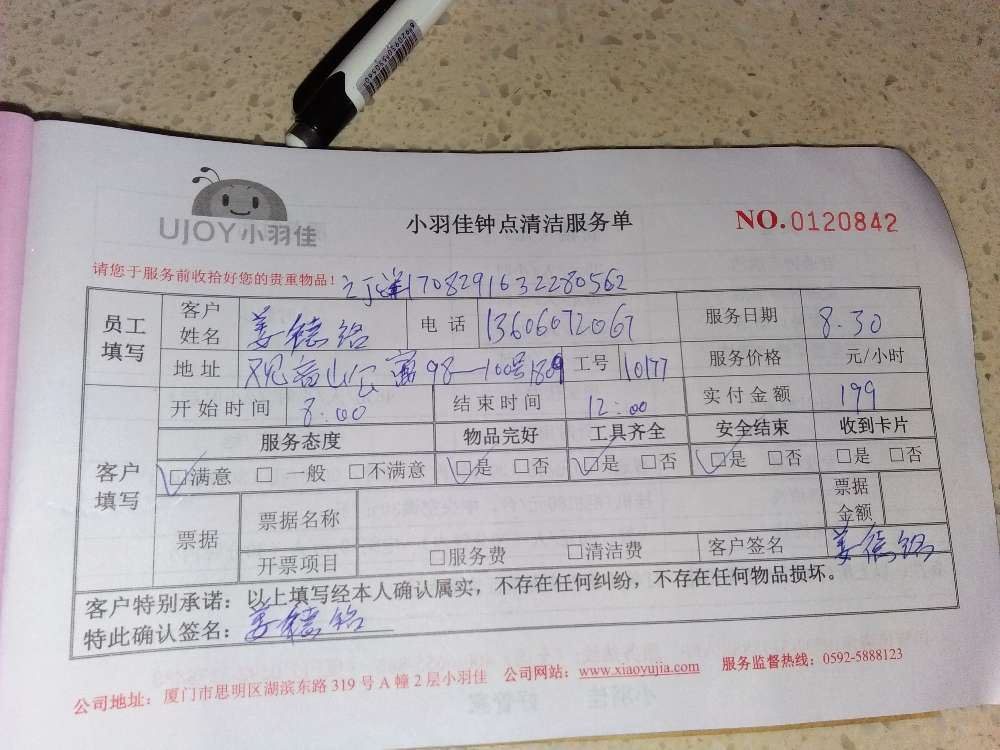 6920930535605
UJOY小羽佳
小羽佳钟点清洁服务单
NO.0120842
请您于服务前收拾好您的贵重物品!
1708291632280562
员工填写 客户姓名 姜德铭 电话 13606072067 服务日期 8.30
地址 观音山公寓98—100号1809 工号 10177 服务价格 元/小时
开始时间 8:00 结束时间 12:00 实付金额 199
客户填写 服务态度 物品完好 工具齐全 安全结束 收到卡片
☑满意 □一般 □不满意 ☑是 □否 ☑是 □否 ☑是 □否 □是 □否
票据 票据名称 票据金额
开票项目 □服务费 □清洁费 客户签名 姜德铭
客户特别承诺:以上填写经本人确认属实,不存在任何纠纷,不存在任何物品损坏。
特此确认签名:姜德铭
公司地址:厦门市思明区湖滨东路319号A幢2层小羽佳 公司网站:www.xiaoyujia.com 服务监督热线:0592-5888123